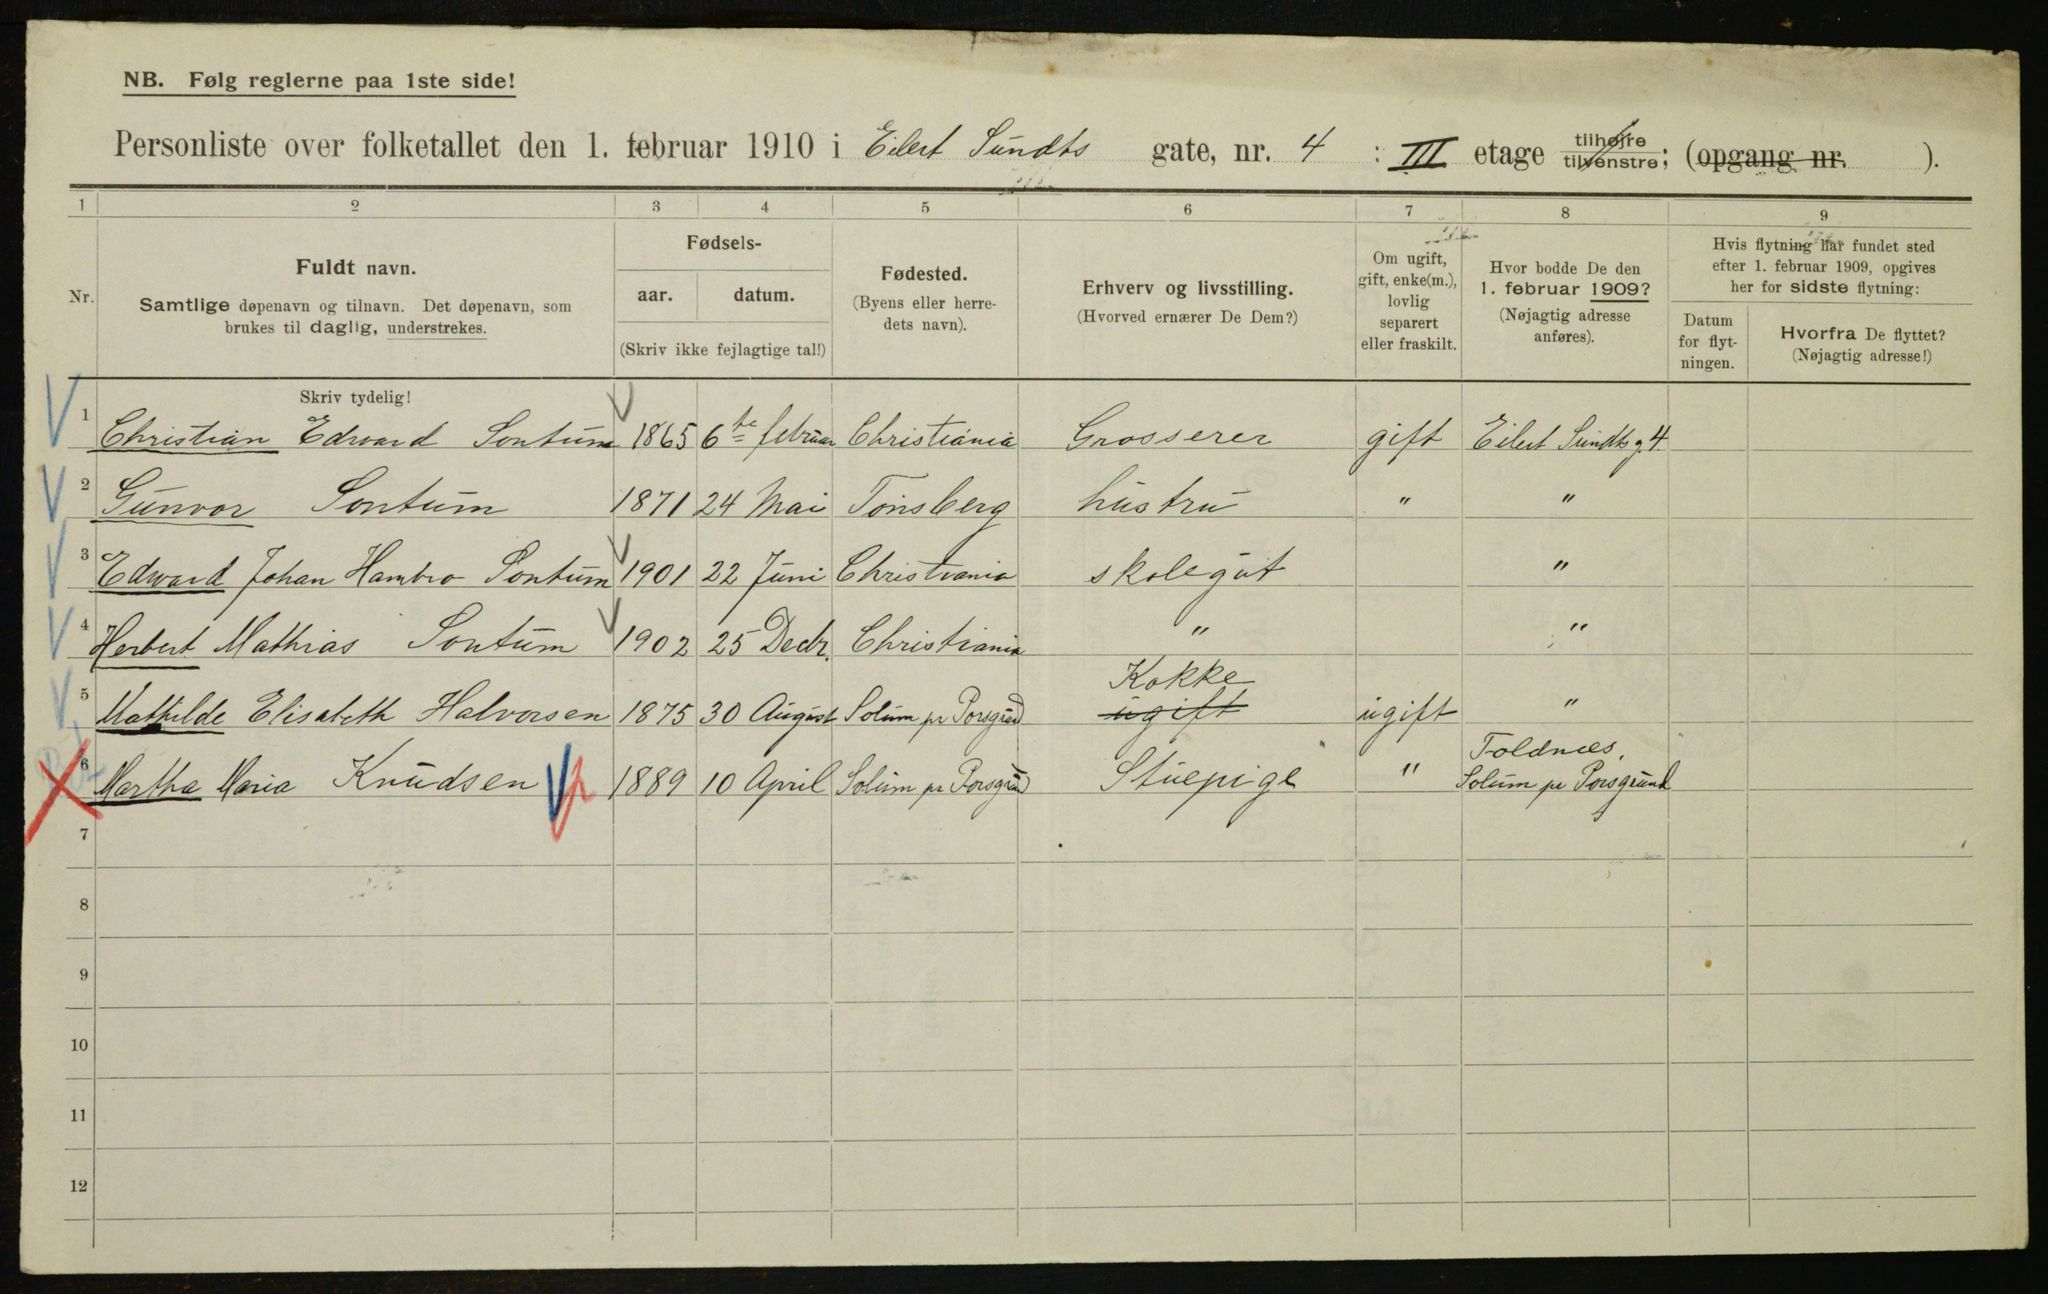 NB. Følg reglerne paa 1ste side!
Personliste over folketallet den 1. februar 1910 i Eilert Sundts gate, nr. 4 : III etage tilhøjre tilvenstre; (opgang nr. ).
1 2 3 4 5 6 7 8 9
Nr.
Fuldt navn.
Samtlige døpenavn og tilnavn. Det døpenavn, som
brukes til daglig, understrekes.
Fødsels-
aar. datum.
(Skriv ikke fejlagtige tal!)
Fødested.
(Byens eller herre-
dets navn).
Erhverv og livsstilling.
(Hvorved ernærer De Dem?)
Om ugift,
gift, enke(m.),
lovlig
separert
eller fraskilt.
Hvor bodde De den
1. februar 1909?
(Nøjagtig adresse
anføres).
Hvis flytning har fundet sted
efter 1. februar 1909, opgives
her for sidste flytning:
Datum
for flyt-
ningen.
Hvorfra De flyttet?
(Nøjagtig adresse!)
Skriv tydelig!
1 Christian Edward Sontum 1865 6te februar Christiania Grosserer gift Eilert Sundts g. 4.
2 Gunvor Sontum 1871 24 Mai Tønsberg hustru " "
3 Edward Johan Hambro Sontum 1901 22 Juni Christiania skolegut "
4 Herbert Mathias Sontum 1902 25 Decbr. Christiania " "
Kokke
5 Mathilde Elisabeth Halvorsen 1875 30 August Solum pr Porsgrund ugift ugift "
Foldnæs,
6 Martha Maria Knudsen 1889 10 April Solum pr Porsgrund Stuepige " Solum pr Porsgrund
7
8
9
10
11
12